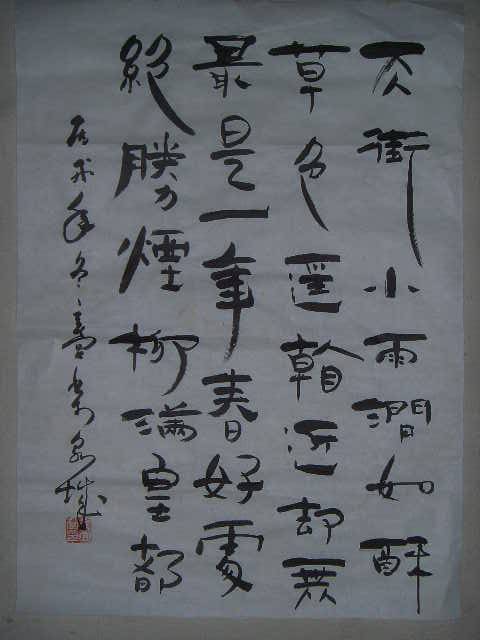 天街小雨潤如酥
草色遥看近却無
最是一年春好處
絶勝煙柳滿皇都
年冬泉城